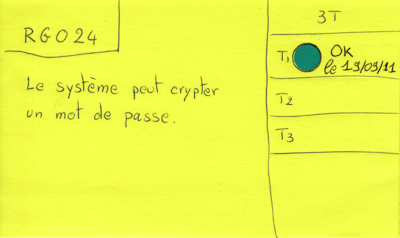 RG024
Le système peut crypter
un mot de passe.
3T
T1 OK
le 13/03/11
T2
T3